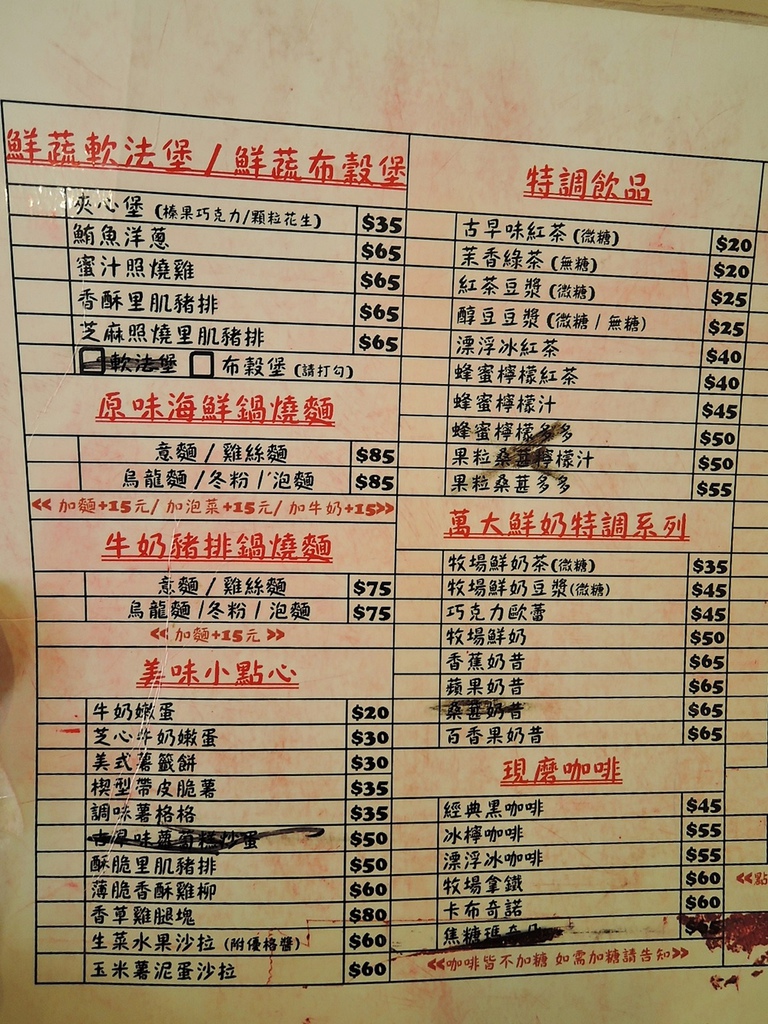 鮮蔬軟法堡 / 鮮蔬布穀堡
夾心堡 (榛果巧克力/顆粒花生) $35
鮪魚洋蔥 $65
蜜汁照燒雞 $65
香酥里肌豬排 $65
芝麻照燒里肌豬排 $65
軟法堡 布穀堡 (請打勾)
原味海鮮鍋燒麵
意麵 / 雞絲麵 $85
烏龍麵 / 冬粉 / 泡麵 $85
<< 加麵+15元/ 加泡菜+15元/ 加牛奶+15>>
牛奶豬排鍋燒麵
意麵 / 雞絲麵 $75
烏龍麵 / 冬粉 / 泡麵 $75
<< 加麵+15元 >>
美味小點心
牛奶嫩蛋 $20
芝心牛奶嫩蛋 $30
美式薯籤餅 $30
楔型帶皮脆薯 $35
調味薯格格 $35
古早味蘿蔔糕炒蛋 $50
酥脆里肌豬排 $50
薄脆香酥雞柳 $60
香草雞腿塊 $80
生菜水果沙拉 (附優格醬) $60
玉米薯泥蛋沙拉 $60
特調飲品
古早味紅茶 (微糖) $20
茉香綠茶 (無糖) $20
紅茶豆漿 (微糖) $25
醇豆豆漿 (微糖 / 無糖) $25
漂浮冰紅茶 $40
蜂蜜檸檬紅茶 $40
蜂蜜檸檬汁 $45
蜂蜜檸檬多多 $50
果粒桑葚檸檬汁 $50
果粒桑葚多多 $55
萬大鮮奶特調系列
牧場鮮奶茶 (微糖) $35
牧場鮮奶豆漿 (微糖) $45
巧克力歐蕾 $45
牧場鮮奶 $50
香蕉奶昔 $65
蘋果奶昔 $65
桑葚奶昔 $65
百香果奶昔 $65
現磨咖啡
經典黑咖啡 $45
冰檸咖啡 $55
漂浮冰咖啡 $55
牧場拿鐵 $60
卡布奇諾 $60
焦糖瑪奇朵
<<咖啡皆不加糖 如需加糖請告知>>
<<點